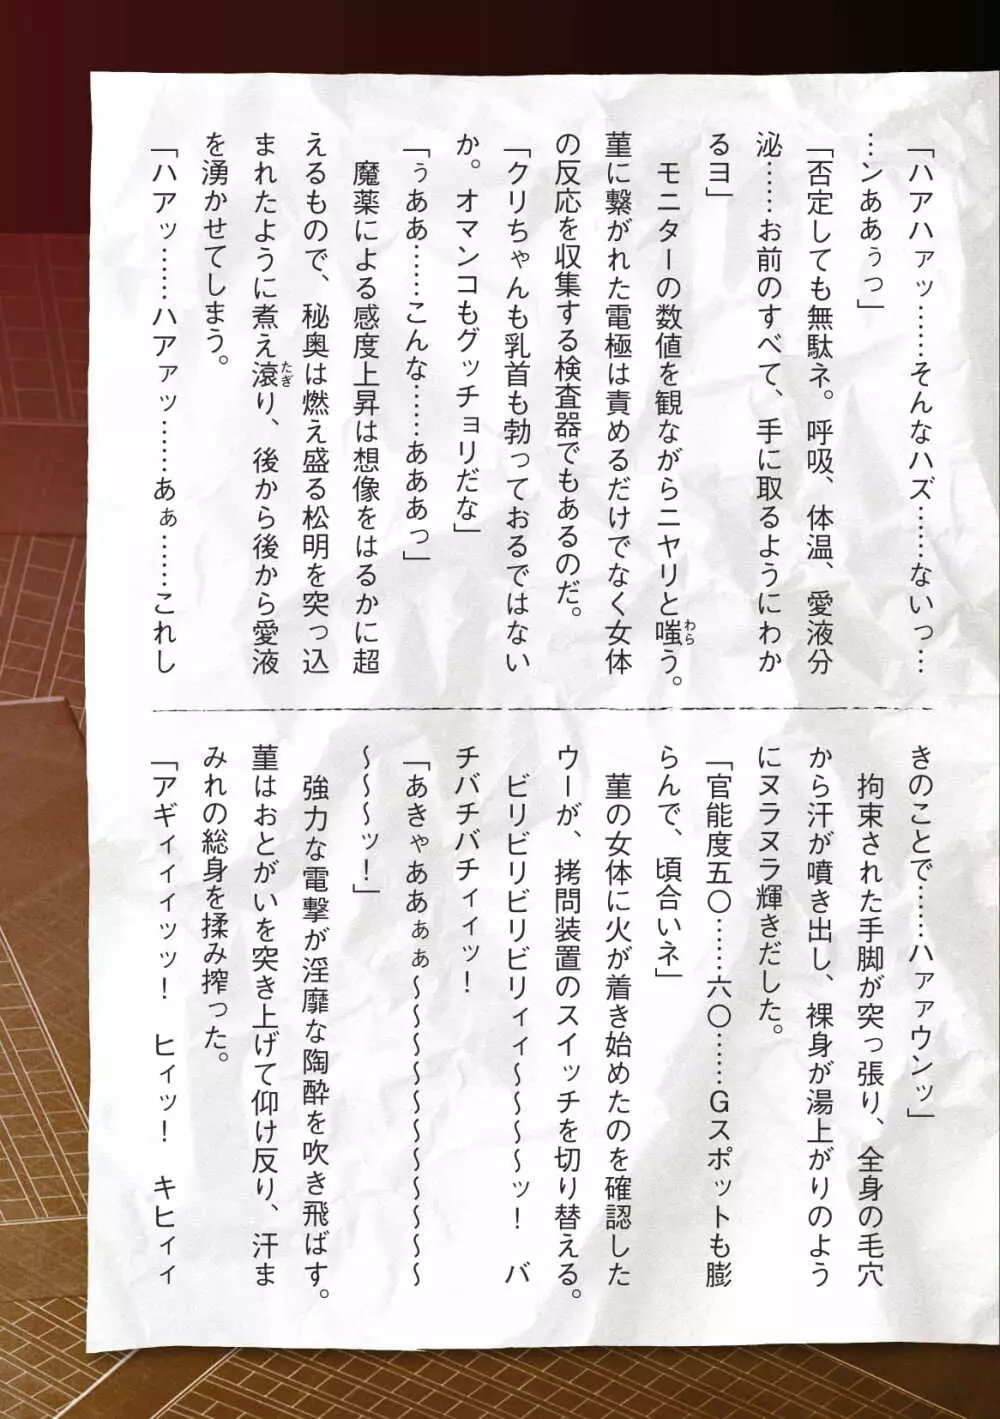 「ハアハァッ……そんなハズ……ないっ…
…ンああぅっ」
「否定しても無駄ネ。呼吸、体温、愛液分
泌……お前のすべて、手に取るようにわか
るヨ」
　モニターの数値を観ながらニヤリと嗤う。
わら
菫に繋がれた電極は責めるだけでなく女体
の反応を収集する検査器でもあるのだ。
「クリちゃんも乳首も勃っておるではない
か。オマンコもグッチョリだな」
「ぅああ……こんな……あああっ」
　魔薬による感度上昇は想像をはるかに超
えるもので、秘奥は燃え盛る松明を突っ込
まれたように煮え滾り、後から後から愛液
たぎ
を湧かせてしまう。
「ハアッ……ハアァッ……あぁ……これし
きのことで……ハァァウンッ」
　拘束された手脚が突っ張り、全身の毛穴
から汗が噴き出し、裸身が湯上がりのよう
にヌラヌラ輝きだした。
「官能度五〇……六〇……Gスポットも膨
らんで、頃合いネ」
　菫の女体に火が着き始めたのを確認した
ウーが、拷問装置のスイッチを切り替える。
　ビリビリビリビリィィ～～～～ッ！　バ
チバチバチィィッ！
「あきゃああぁぁ～～～～～～～～～～～
～～～～ッ！」
　強力な電撃が淫靡な陶酔を吹き飛ばす。
菫はおとがいを突き上げて仰け反り、汗ま
みれの総身を揉み搾った。
「アギィィィッッ！　ヒィッ！　キヒィィ